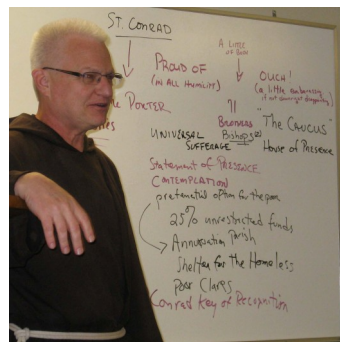 ST. CONRAD
A LITTLE
PROUD OF
(IN ALL HUMILITY)
OUCH!
(a little embarrassing
if not downright disappointing)
PORTER
71
BROTHERS
Bishops
"The CAUCUS"
House of Presence
UNIVERSAL
SUFFERAGE
Statement of PRESENCE
CONTEMPLATION
preferential option for the poor
25% unrestricted funds
Annunciation Parish
Shelter for the Homeless
Poor Clares
Conrad Key of Recognition